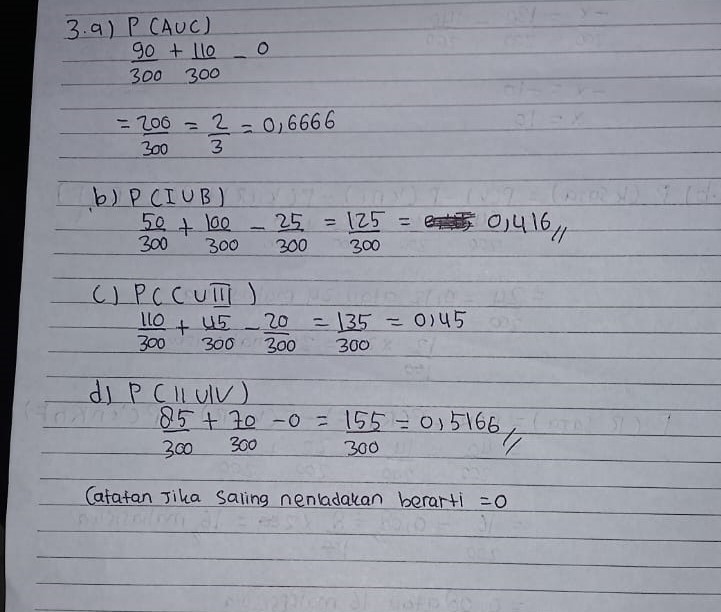 3.a) P(AUC)
90/300 + 110/300 - 0
= 200/300 = 2/3 = 0,6666
b) P(IUB)
50/300 + 100/300 - 25/300 = 125/300 = 0,416 //
c) P(CUIII)
110/300 + 45/300 - 20/300 = 135/300 = 0,45
d) P(IIUIV)
85/300 + 70/300 - 0 = 155/300 = 0,5166 //
Catatan Jika Saling meniadakan berarti = 0